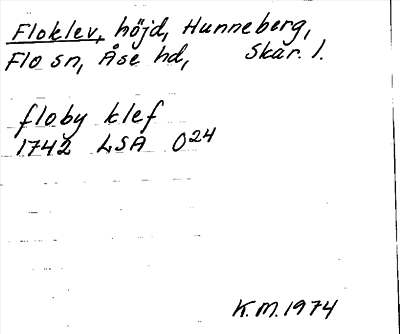 Floklev, höjd, Hunneberg,
Flo sn, Åse hd, Skar. l.
floby klef
1742 LSA O24
K.M. 1974